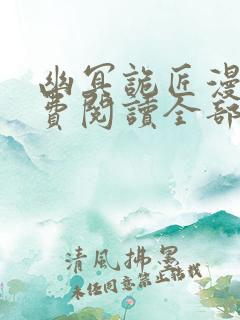 幽冥詭匠漫
費閱讀全部
清風拂墨
未经同意禁止轉載